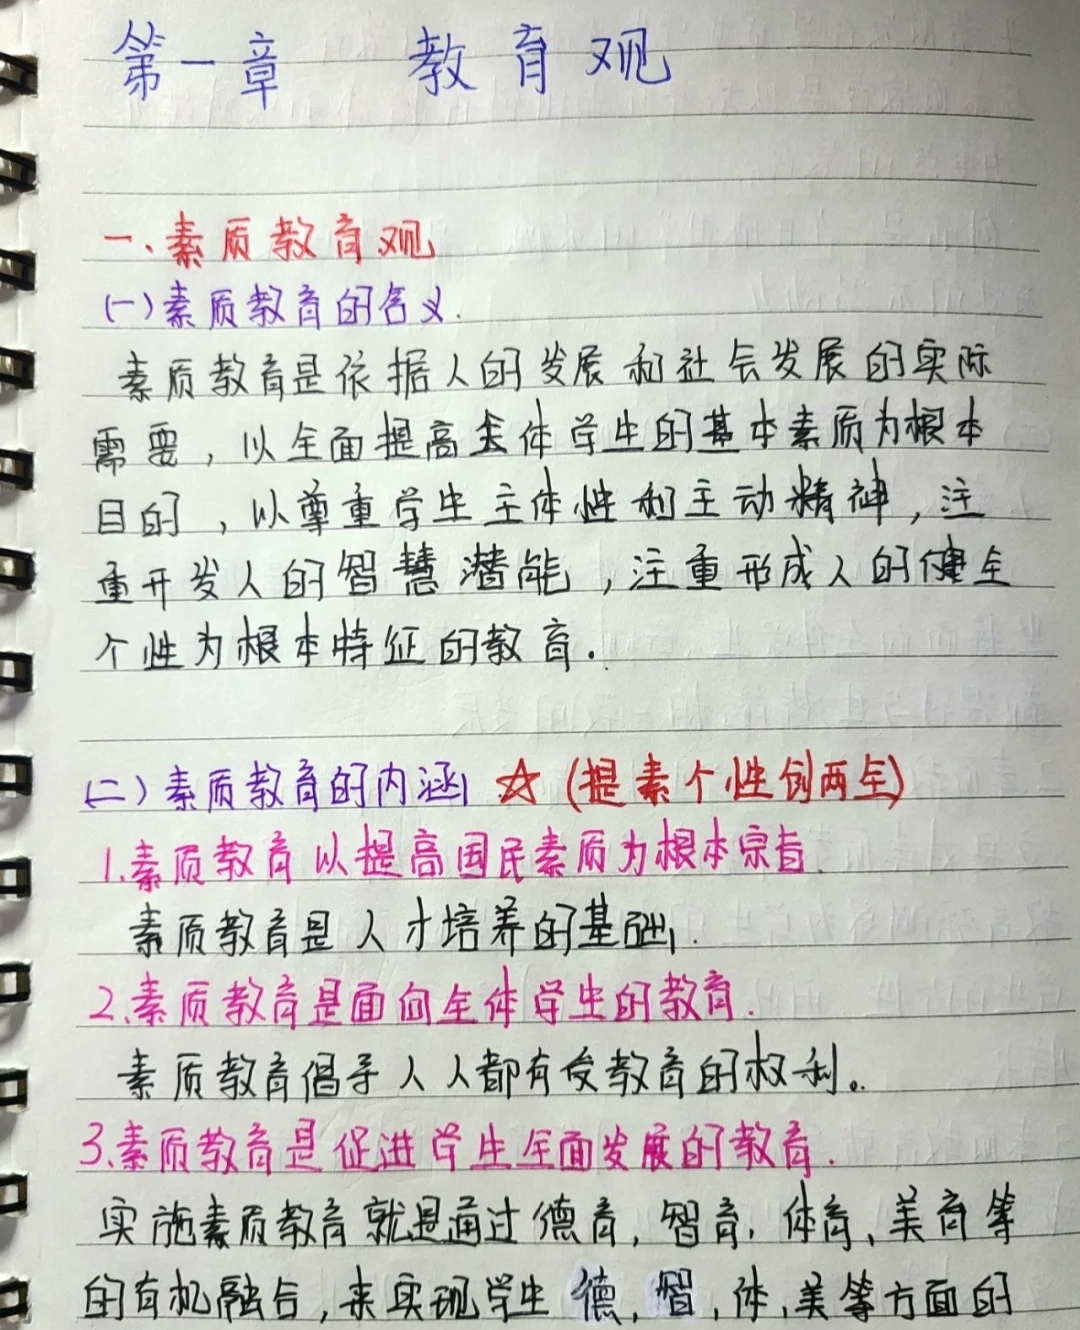 第一章 教育观
一、素质教育观
(一)素质教育的含义.
素质教育是依据人的发展和社会发展的实际
需要，以全面提高全体学生的基本素质为根本
目的，以尊重学生主体性和主动精神，注
重开发人的智慧潜能，注重形成人的健全
个性为根本特征的教育.
(二)素质教育的内涵 ☆ (提素个性创两全)
1.素质教育以提高国民素质为根本宗旨.
素质教育是人才培养的基础.
2.素质教育是面向全体学生的教育.
素质教育倡导人人都有受教育的权利。
3.素质教育是促进学生全面发展的教育.
实施素质教育就是通过德育，智育，体育、美育等
的有机融合，来实现学生德，智，体、美等方面的